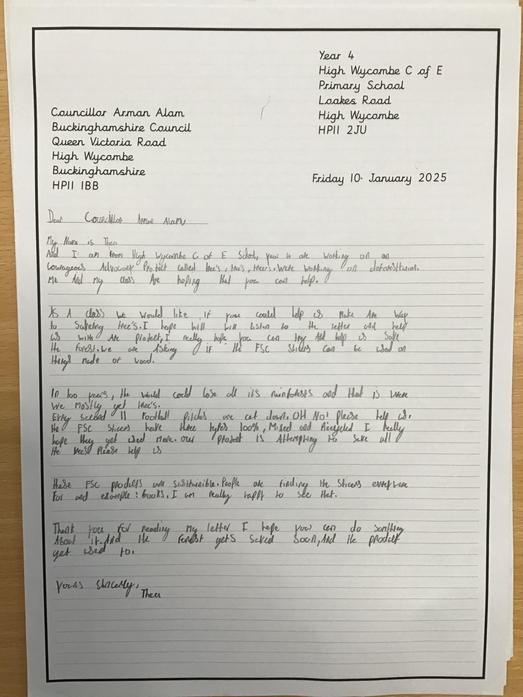 Year 4
High Wycombe C of E
Primary School
Loakes Road
High Wycombe
HP11 2JU
Councillor Arman Alam
Buckinghamshire Council
Queen Victoria Road
High Wycombe
Buckinghamshire
HP11 1BB
Friday 10 January 2025
Dear Councillor Alam
My Name is
And I am from High Wycombe C of E School, year 4 are working on an
Courageous Advocacy called working on deforestation.
Me And My class Are hoping that you can help.
As A class we would like, if you could help us Make Are Way
to I hope will listen to the letter and help
us with Are I really hope you can try And help us Save
the Forest. We are Asking if the FSC can be used on
things made of wood.
In 100 years, the World could lose all its rainforests and that is were
We Mostly get
Every second 11 Football pitches are cut down. OH NO! Please help us.
the FSC have three types 100%, Mixed and Recycled I really
hope they get used more. our is Attempting to save all
the Please help us
these FSC products are People are finding the everywhere
For example : books. I am really happy to see that.
Thank you For reading My letter I hope you can do something
About it. And the Forest gets soon, And the
get used to.
Yours Sincerely,